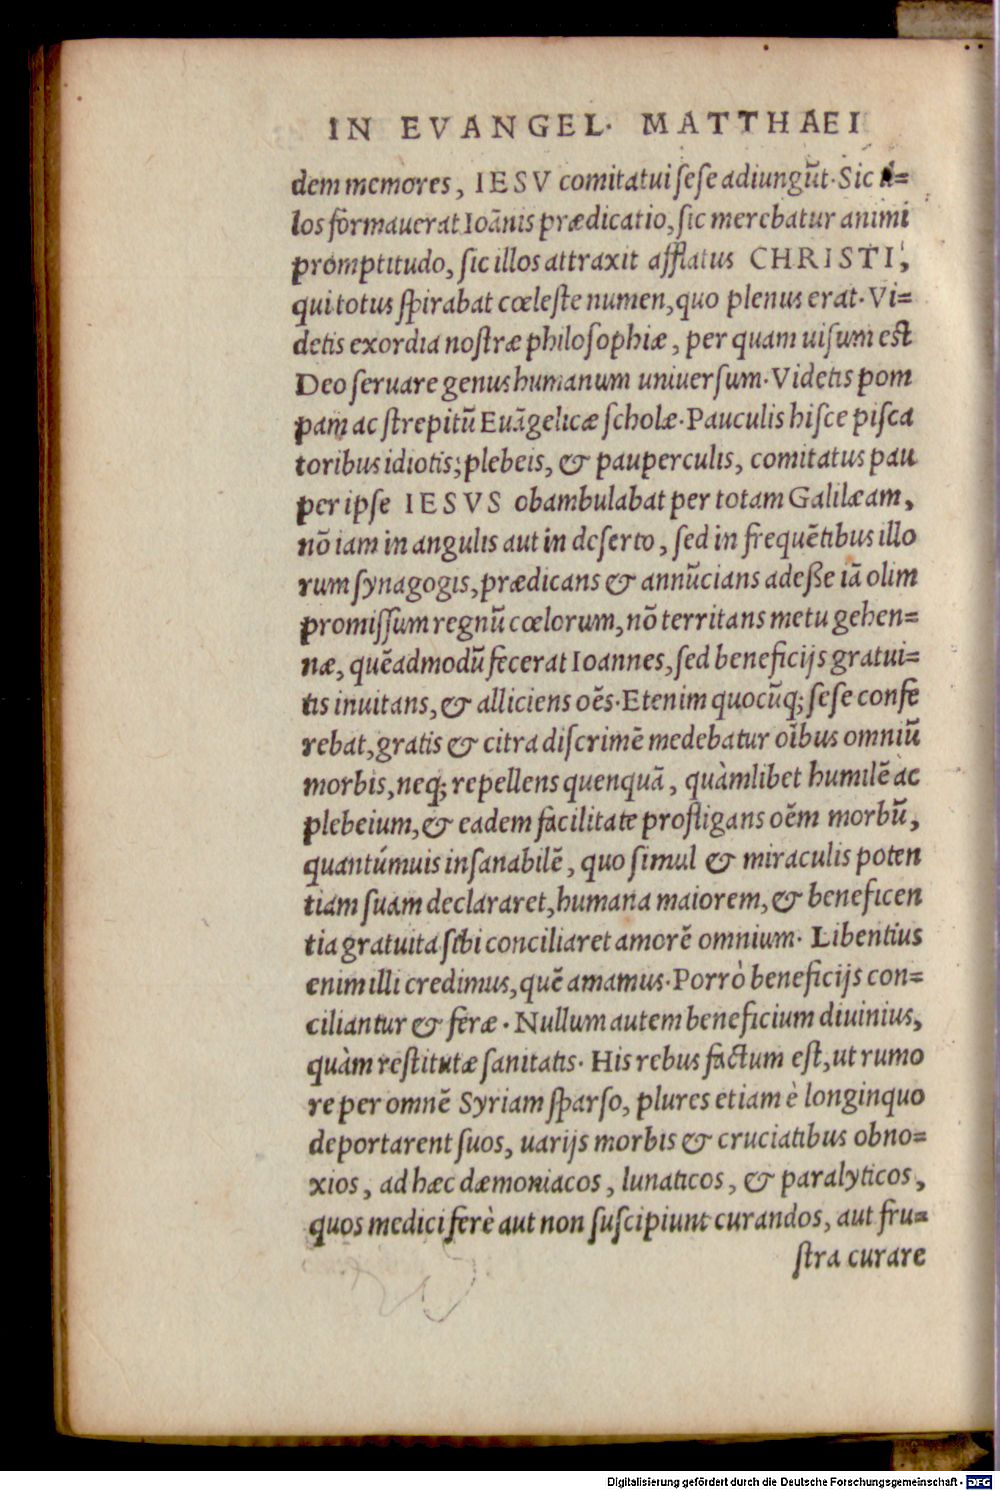 IN EVANGEL. MATTHAEI
dem memores, IESV comitatui sese adiungũt. Sic il=
los formauerat Ioãnis prædicatio, sic merebatur animi
promptitudo, sic illos attraxit afflatus CHRISTI,
qui totus spirabat cœleste numen, quo plenus erat. Vi=
detis exordia nostræ philosophiæ, per quam uisum est
Deo seruare genus humanum uniuersum. Videtis pom
pam ac strepitũ Euãgelicæ scholæ. Pauculis hisce pisca
toribus idiotis; plebeis, & pauperculis, comitatus pau
per ipse IESVS obambulabat per totam Galilæam,
nõ iam in angulis aut in deserto, sed in frequẽtibus illo
rum synagogis, prædicans & annũcians adeße iã olim
promissum regnũ cœlorum, nõ territans metu gehen=
næ, quẽadmodũ fecerat Ioannes, sed beneficijs gratui=
tis inuitans, & alliciens oẽs. Etenim quocũq; sese confe
rebat, gratis & citra discrimẽ medebatur oĩbus omniũ
morbis, neq; repellens quenquã, quàmlibet humilẽ ac
plebeium, & eadem facilitate profligans oẽm morbũ,
quantúmuis insanabilẽ, quo simul & miraculis poten
tiam suam declararet, humana maiorem, & beneficen
tia gratuita sibi conciliaret amorẽ omnium. Libentius
enim illi credimus, quẽ amamus. Porrò beneficijs con=
ciliantur & feræ. Nullum autem beneficium diuinius,
quàm restitutæ sanitatis. His rebus factum est, ut rumo
re per omnẽ Syriam sparso, plures etiam è longinquo
deportarent suos, uarijs morbis & cruciatibus obno=
xios, ad hæc dæmoniacos, lunaticos, & paralyticos,
quos medici ferè aut non suscipiunt curandos, aut fru=
stra curare
Digitalisierung gefördert durch die Deutsche Forschungsgemeinschaft - DFG